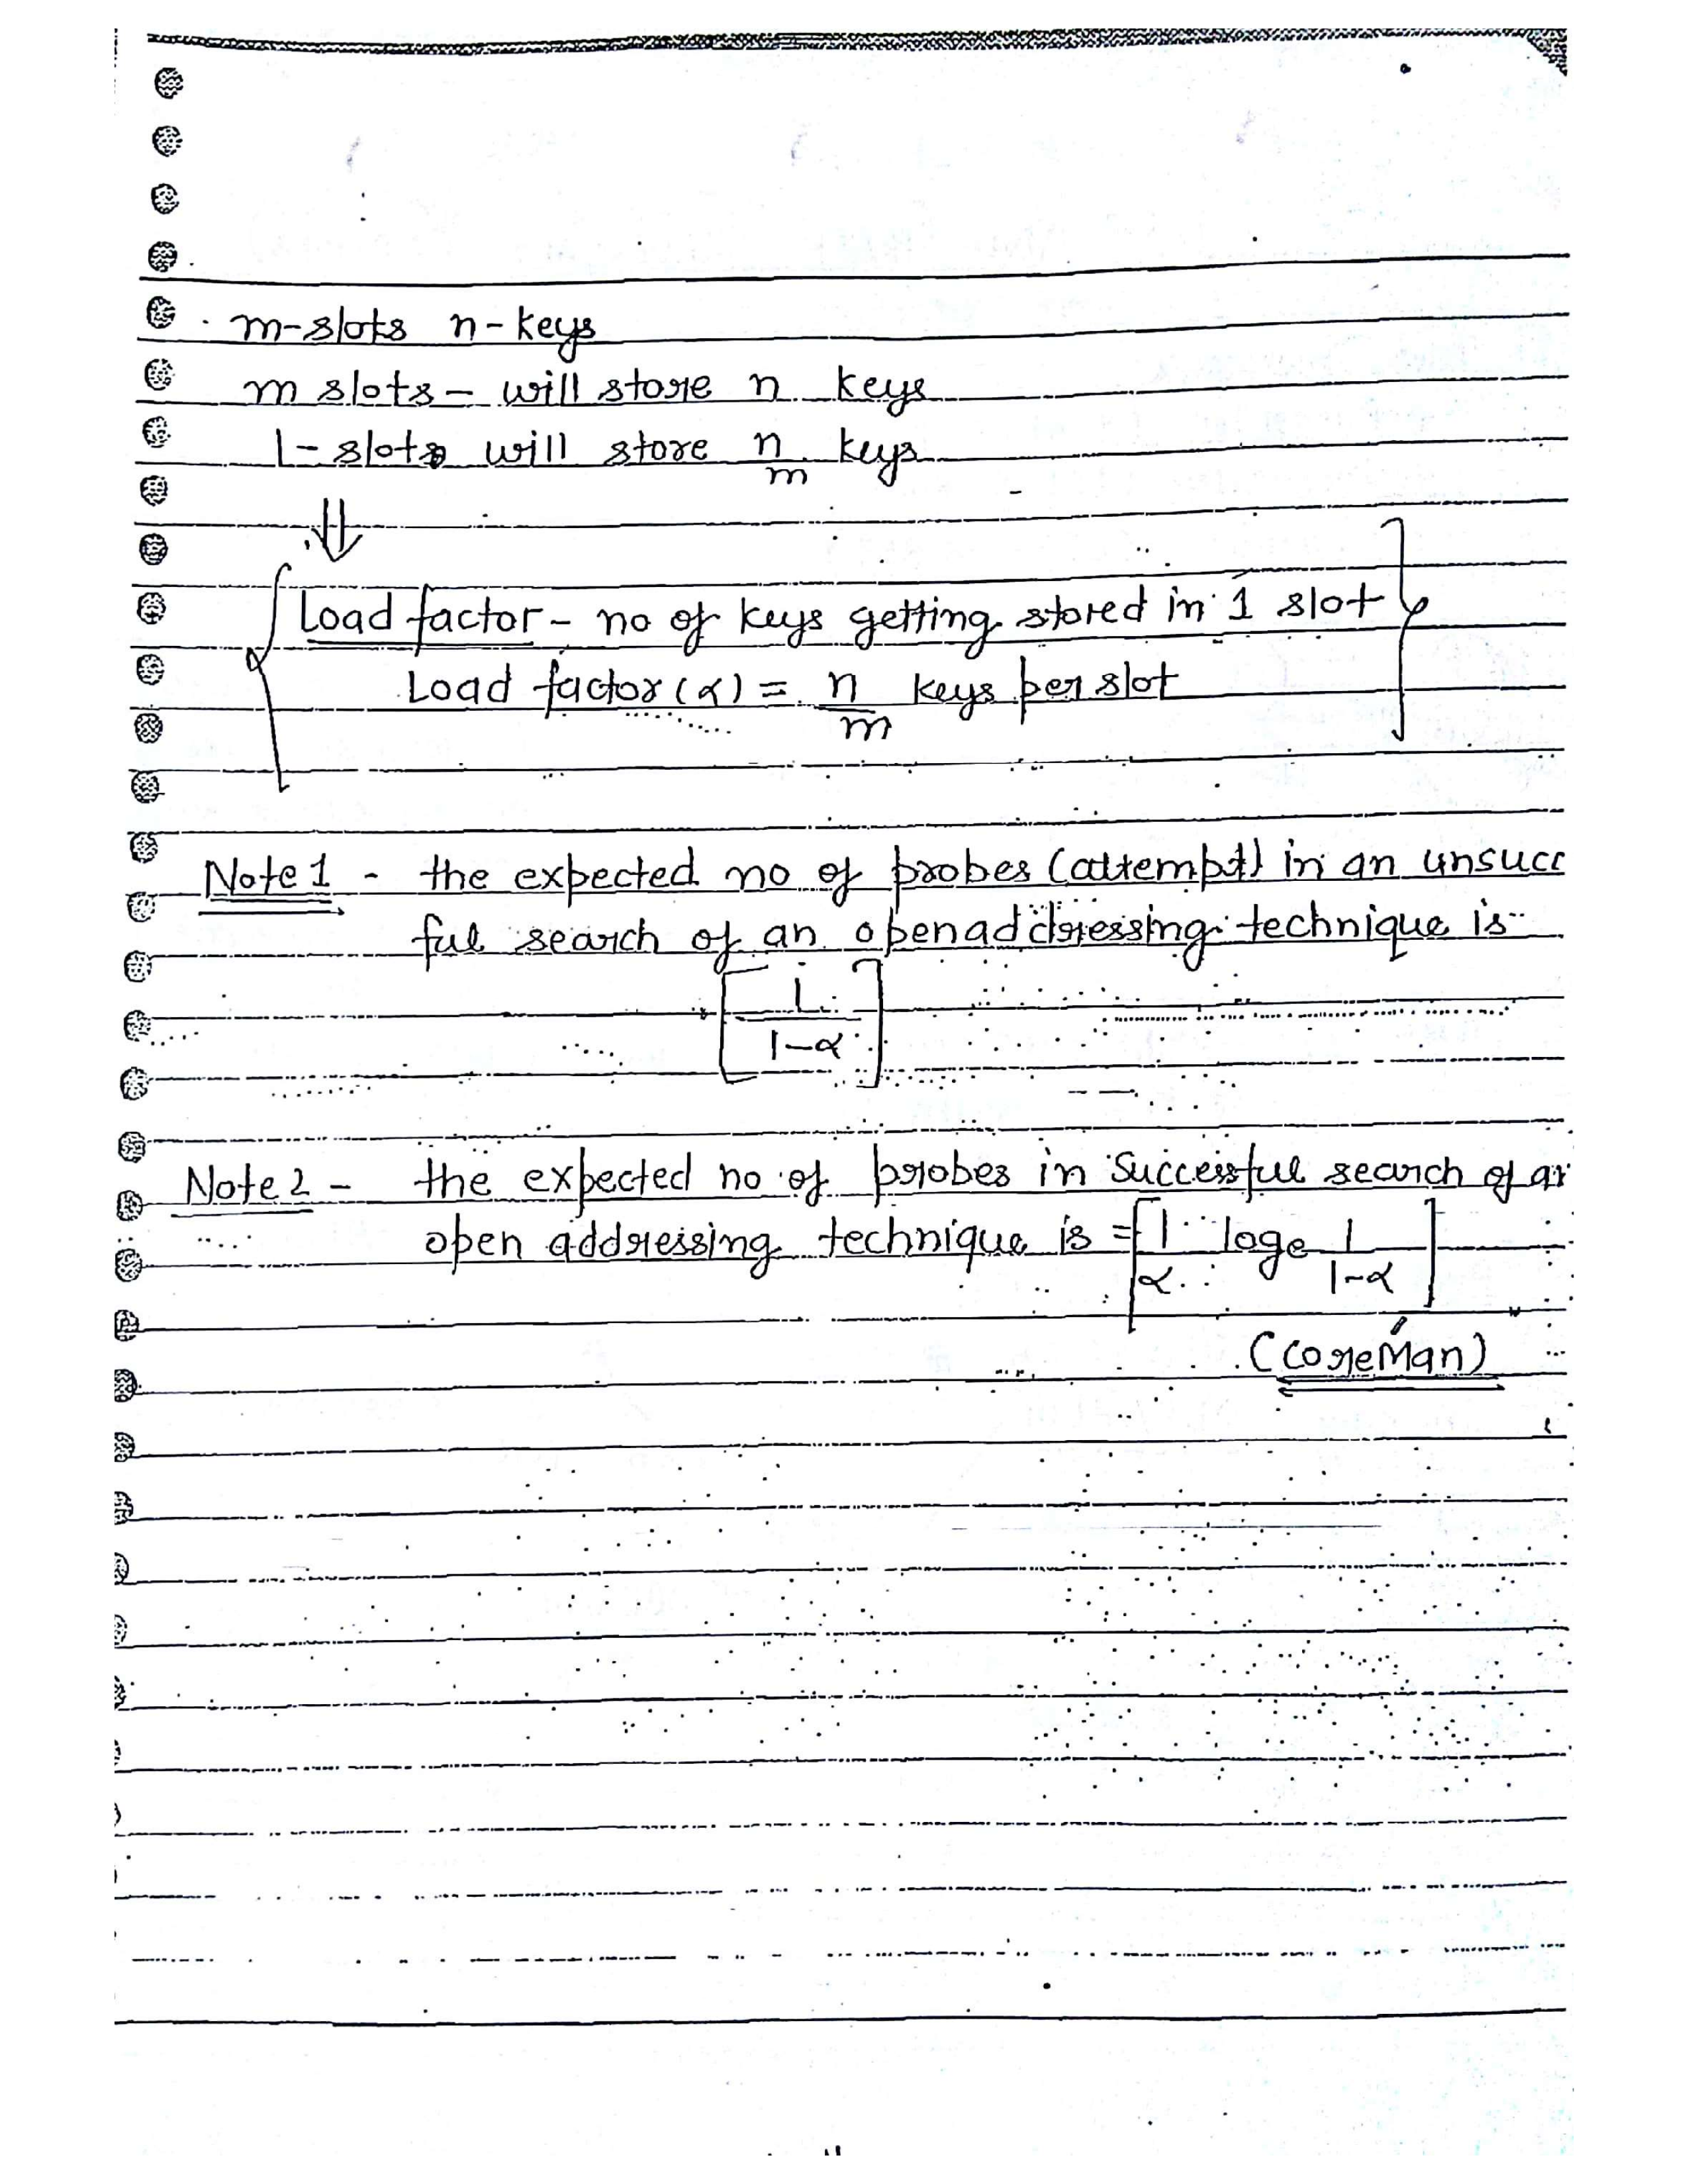 m-slots n-keys
m slots - will store n keys
1-slots will store n/m keys
⇓
Load factor - no of keys getting stored in 1 slot
Load factor (α) = n/m keys per slot
Note 1 - the expected no of probes (attempt) in an unsucc
ful search of an open addressing technique is
[1/(1-α)]
Note 2 - the expected no of probes in Successful search of an
open addressing technique is = [1/α loge 1/(1-α)]
(CoreMan)